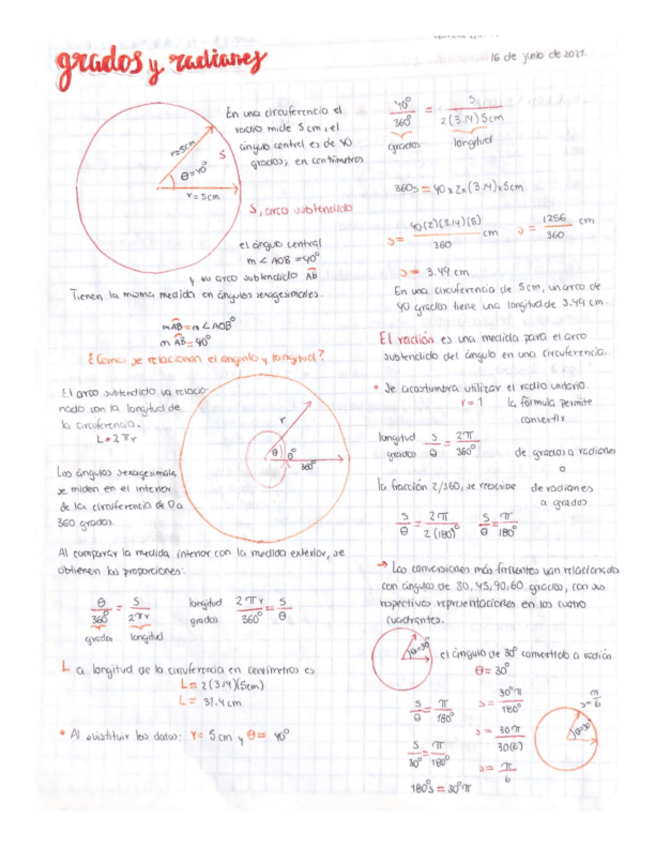 grados y radianes
16 de junio de 2021.
En una circuferencia el
radio mide 5 cm, el
ángulo central es de 40
grados, en centímetros
r=5cm
θ=40°
S
r=5cm
S, arco subtendido
el ángulo central
m∠AOB=40°
y su arco subtendido AB
Tienen la misma medida en ángulos sexagesimales.
mAB=m∠AOB°
mAB=40°
¿Como se relacionan el angulo y longitud?
El arco subtendido va relacio-
nado con la longitud de
la circuferencia.
L=2πr
Los ángulos sexagesimales
se miden en el interior
de la circuferencia de 0 a
360 grados.
r
θ
0°
360°
Al comparar la medida interior con la medida exterior, se
obtienen las proporciones:
θ/360° = S/2πr
grados longitud
longitud 2πr/360° = S/θ
grados
La longitud de la circuferencia en centímetros es
L=2(3.14)(5cm)
L= 31.4cm
• Al sustituir los datos: r= 5cm y θ= 40°
40°/360° = S/2(3.14)5cm
grados longitud
360s=40x2x(3.14)x5cm
s= 40(2)(3.14)(5)/360 cm s= 1256/360 cm
s= 3.49 cm
En una circuferencia de 5cm, un arco de
40 grados tiene una longitud de 3.49 cm.
El radián es una medida para el arco
subtendido del ángulo en una circuferencia.
• Se acostumbra utilizar el radio unitario.
r=1 la fórmula permite
convertir
longitud S/θ = 2π/360° de grados a radianes
grados
o
la fracción 2/360, se reescribe de radianes
a grados
S/θ = 2π/2(180°) S/θ = π/180°
→ Las conversiones más frecuentes van relacionadas
con ángulos de 30, 45, 90, 60 grados, con sus
respectivas representaciones en los cuatro
cuadrantes.
θ=30°
el ángulo de 30° convertido a radián
θ=30°
S/θ = π/180° s= 30°π/180°
s=π/6
s= 30π/30(6)
θ=30°
S/30° = π/180° s= π/6
180°s=30°π